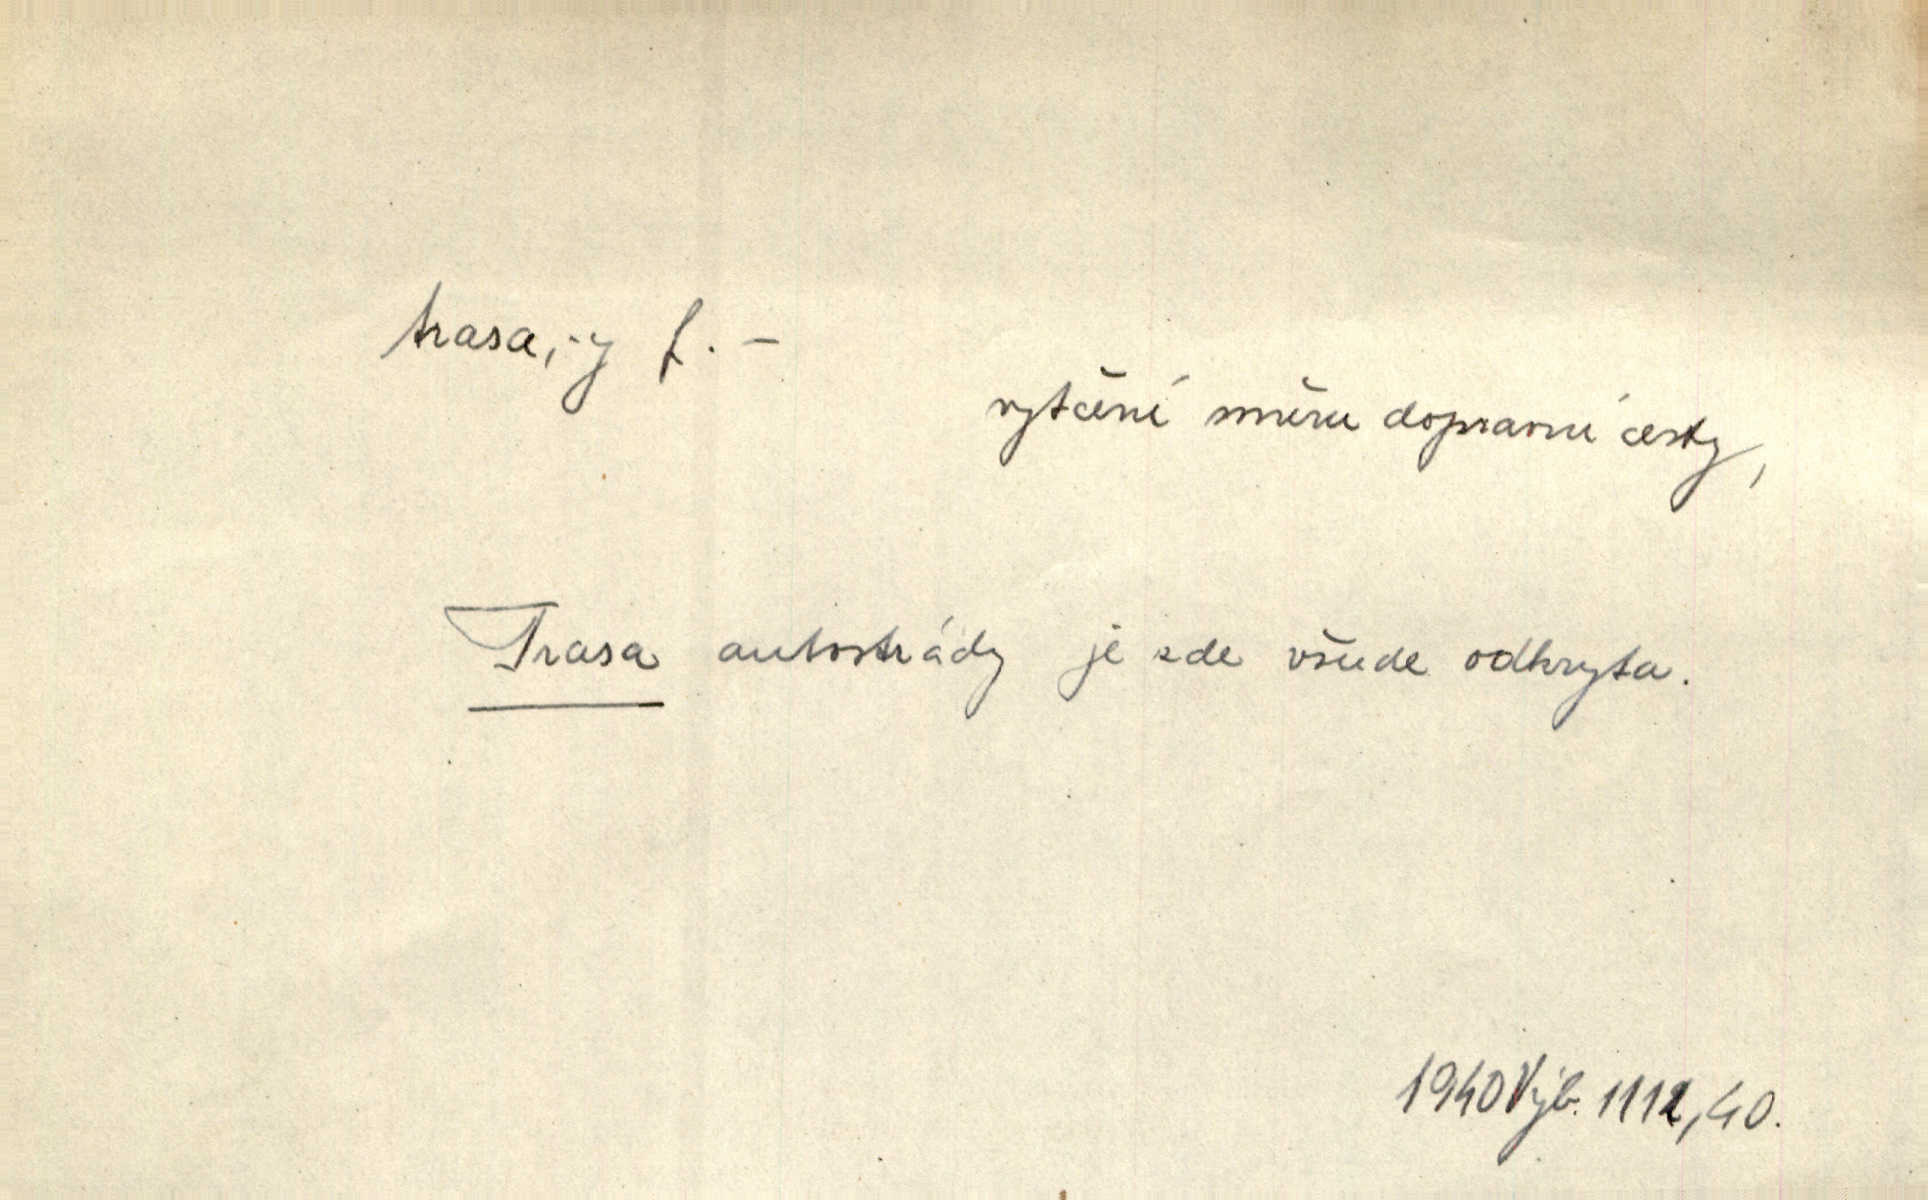 trasa, -y f. –
vytčení směru dopravní cesty,
Trasa autostrády je zde všude odkryta.
1940 Výb. 1112, 40.